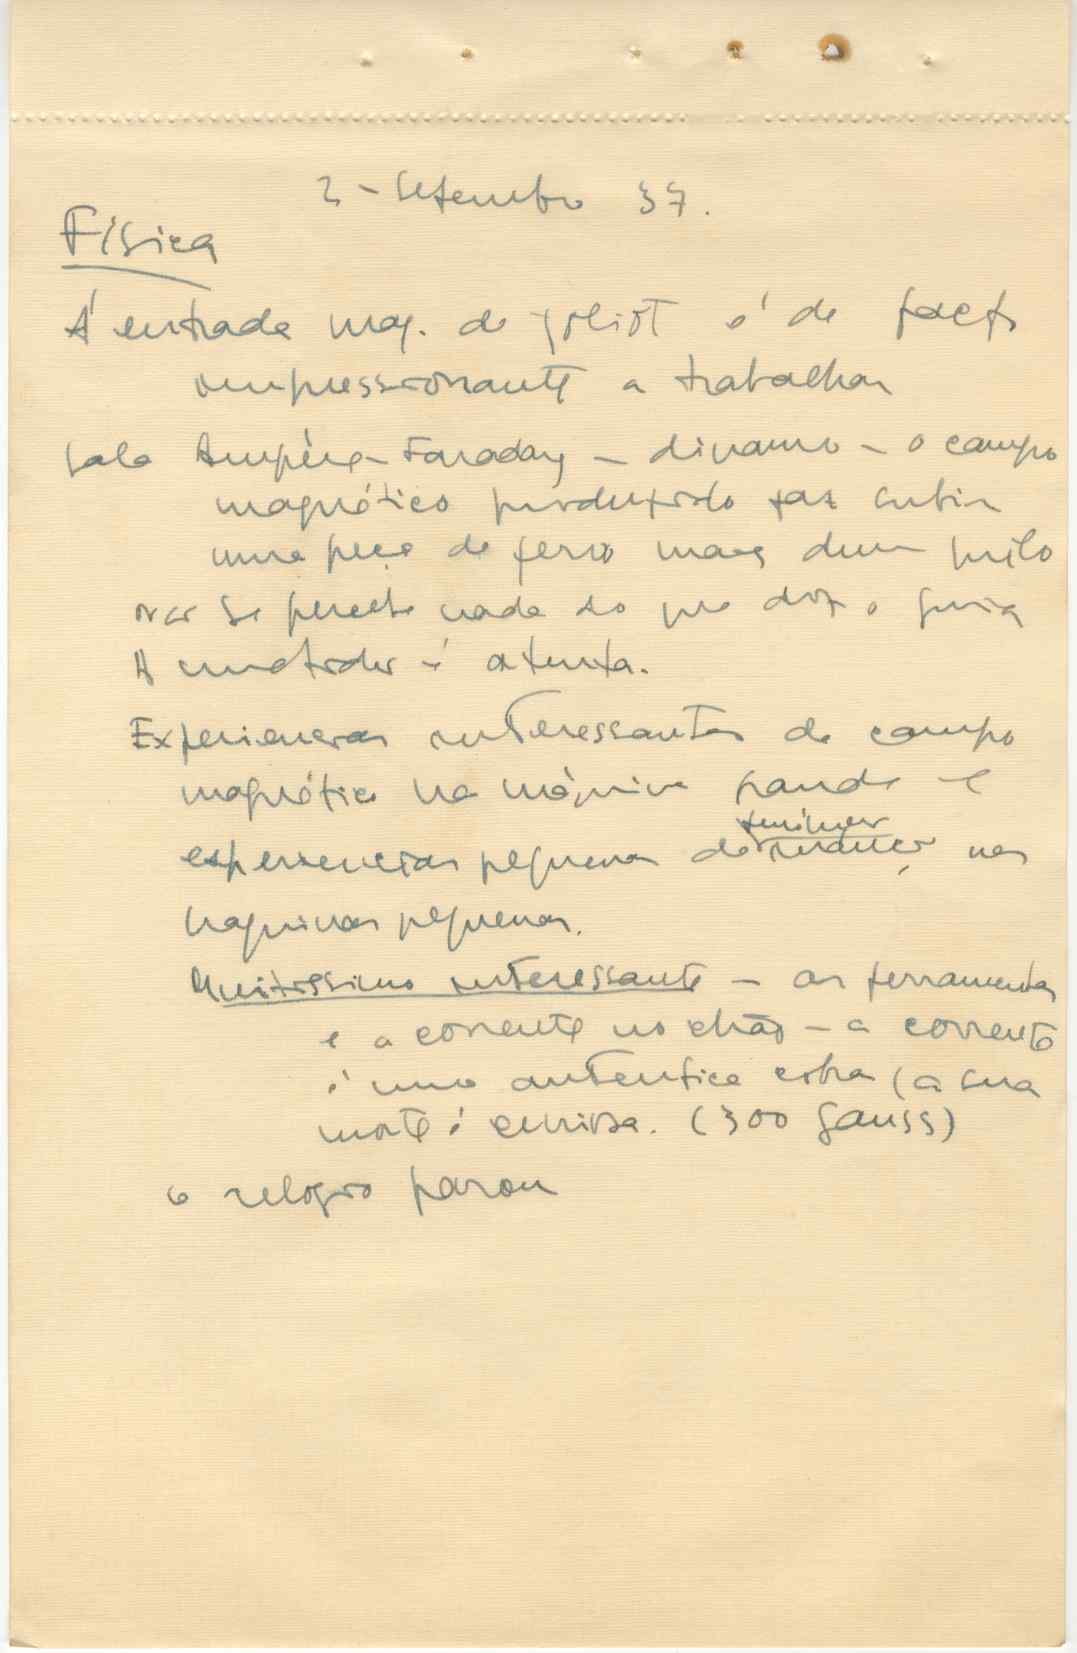 2 - Setembro 37.
Física
Á entrada maq. de Joliot é de facto
impressionante a trabalhar
Sala Ampère-Faraday - dinamo - o campo
magnético produzido faz subir
uma peça de ferro mais dum kilo
não se percebe nada do que diz o guia
A é atenta.
Experiencias interessantes de campo
magnético na máquina grande e
experiencias pequenas de nas
maquinas pequenas.
Muitissimo interessante - as ferramentas
e a corrente no chão - a corrente
é uma autentica cobra (a sua
morte é curiosa. (300 gauss)
o relogio parou